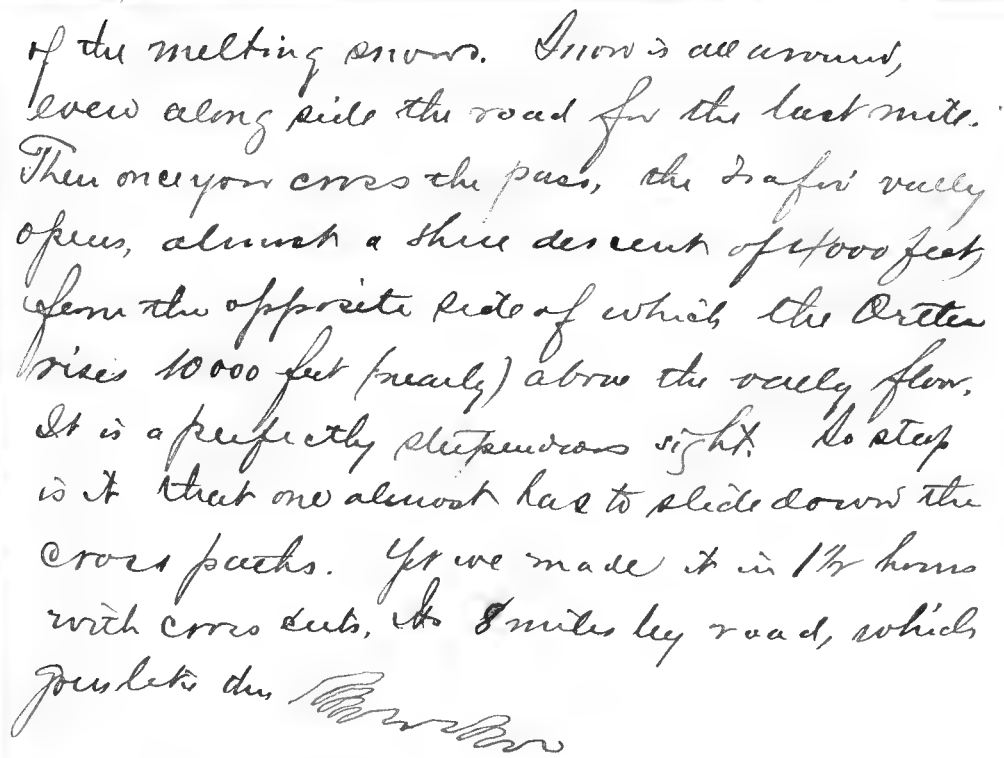 of the melting snows. Snow is all around,
even along side the road for the last mile.
Then once you cross the pass, the Trafoi valley
opens, almost a shere descent of 4000 feet,
from the opposite side of which the Ortler
rises 10000 feet (nearly) above the valley floor.
It is a perfectly stupendous sight. So steep
is it that one almost has to slide down the
cross paths. Yet we made it in 1 1/2 hours
with cross cuts. Its 8 miles by road, which
goes like this